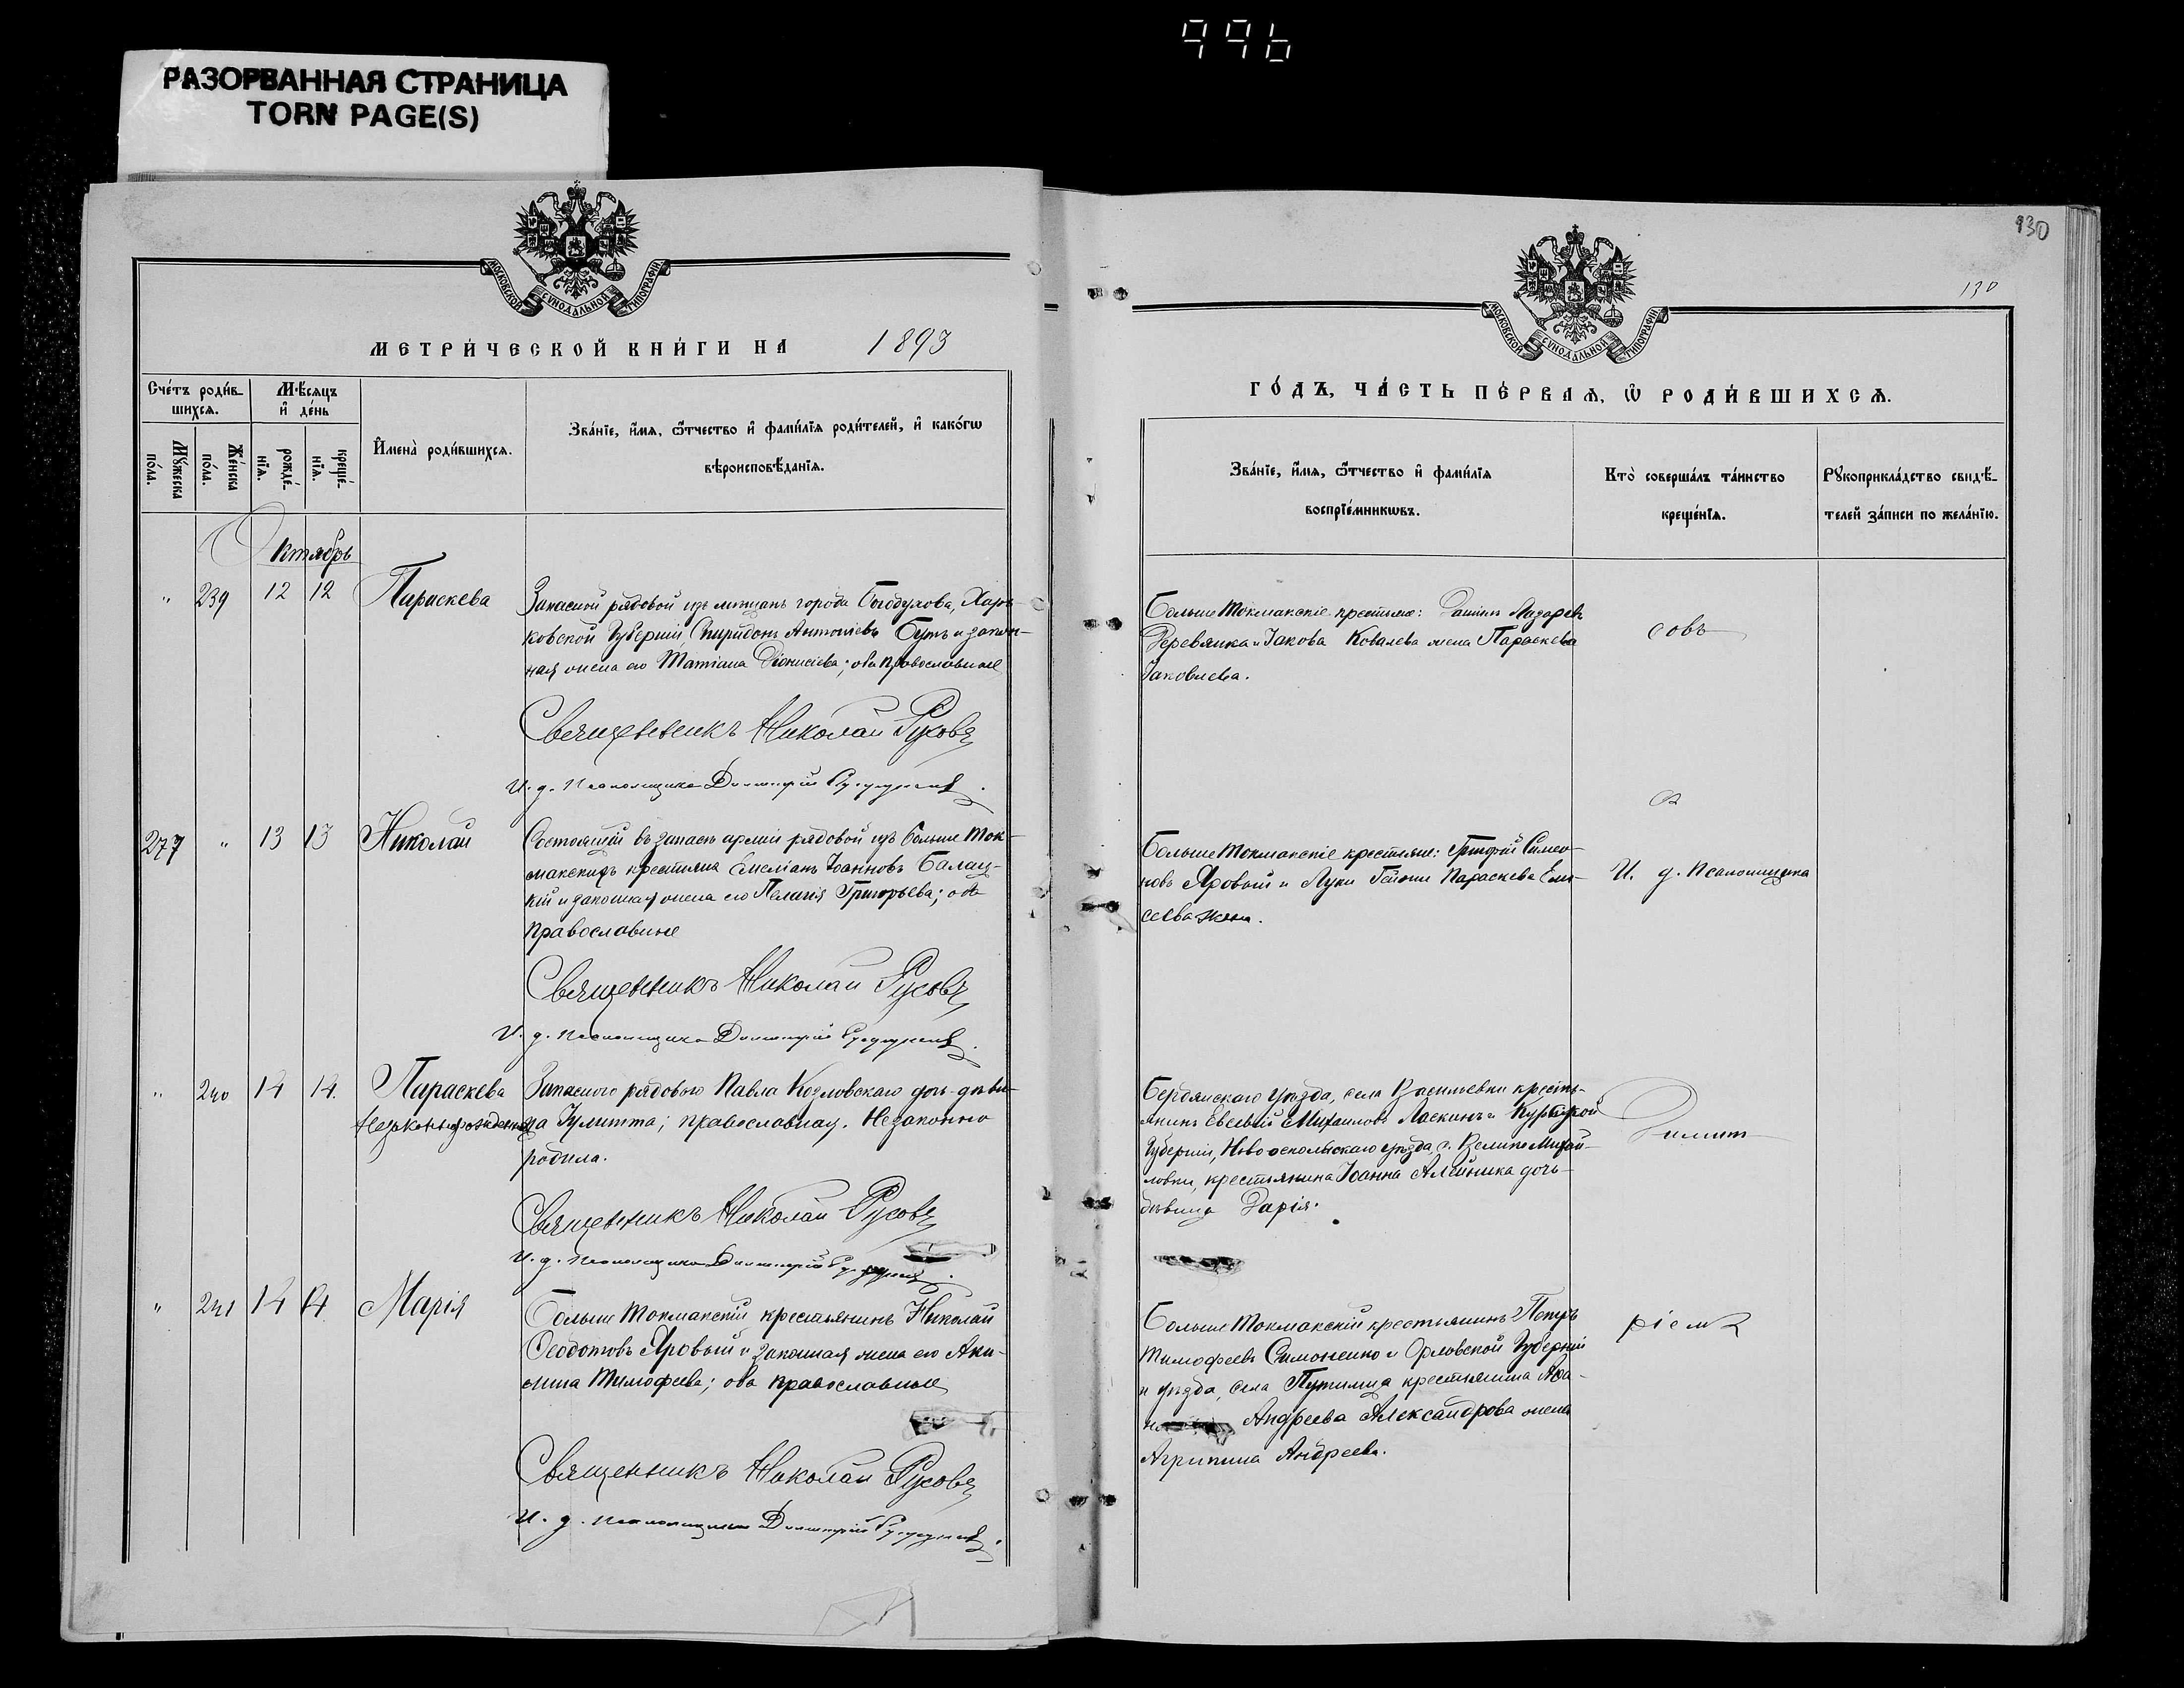 996
РАЗОРВАННАЯ СТРАНИЦА
TORN PAGE(S)
МОСКОВСКОЙ СѴНОДАЛЬНОЙ ТИПОГРАФІИ
МЕТРИ́ЧЕСКОЙ КНИ́ГИ НА 1893
Сче́тъ роди́в-
шихсѧ.
Мѣ́сяцъ
и҆ де́нь
Мꙋ́жеска по́ла.
Же́нска по́ла.
рожде́-нїѧ.
креще́-нїѧ.
И҆мена̀ роди́вшихсѧ.
Зва́нїе, и҆́мѧ, ѻ҆́тчество и҆ фами́лїѧ роди́телей, и҆ како́гѡ
вѣроисповѣ́данїѧ.
Октябрь
" 239 12 12 Параскева
Запасной рядовой изъ мѣщанъ города Богодухова, Харь-
ковской Губерніи Спиридонъ Антоніевъ Бутъ и закон-
ная жена его Татіана Діонисіева; оба православные
Священникъ Николай Русовъ
И. д. Псаломщика Димитрій
277 " 13 13 Николай
Состоящій въ запасѣ арміи рядовой изъ Больше Ток-
макскихъ крестьянъ Емеліанъ Іоанновъ Балац-
кій и законная жена его Пелагія Григорьева; оба
православные
Священникъ Николай Русовъ
И. д. Псаломщика Димитрій
" 240 14 14. Параскева
незаконнорожденная
Запаснаго рядового Павла Козловскаго дочь-дѣви-
ца Іулитта; православная. Незаконно
родила.
Священникъ Николай Русовъ
И. д. Псаломщика Димитрій
" 241 14 14 Марія
Больше Токмакскій крестьянинъ Николай
Ѳеодотовъ Яровый и законная жена его Аки-
лина Тимофеева; оба православные
Священникъ Николай Русовъ
И. д. Псаломщика Димитрій
130
130
МОСКОВСКОЙ СѴНОДАЛЬНОЙ ТИПОГРАФІИ
ГО́ДЪ, ЧА́СТЬ ПЕ́РВАѦ, Ѽ РОДИ́ВШИХСѦ.
Зва́нїе, и҆́мѧ, ѻ҆́тчество и҆ фами́лїѧ
воспрїе́мникѡвъ.
Кто̀ соверша́лъ та́инство
креще́нїѧ.
Рꙋкоприкла́дство свидѣ́-
телей за́писи по жела́нїю.
Больше Токмакскіе крестьяне: Даніилъ Лазаревъ
Деревянка и Іакова Ковалева жена Параскева
Іаковлева.
совъ
Больше Токмакскіе крестьяне: Григорій Симео-
новъ Яровый и Луки жена Параскева Ели-
сеева
И. д. Псаломщика
Бердянскаго уѣзда, села Васильевки кресть-
янинъ Евсевій Михаиловъ Ласкинъ и Курской
Губерніи, Новооскольскаго уѣзда, с. Велико Михай-
ловки, крестьянина Іоанна Алейника дочь-
дѣвица Дарія.
Димит
Больше Токмакскій крестьянинъ Петръ
Тимофеевъ Симоненко и Орловской Губерніи
и уѣзда, села Путимца крестьянина
Андреева Александрова жена
Агрипина Андреева.
рiемъ